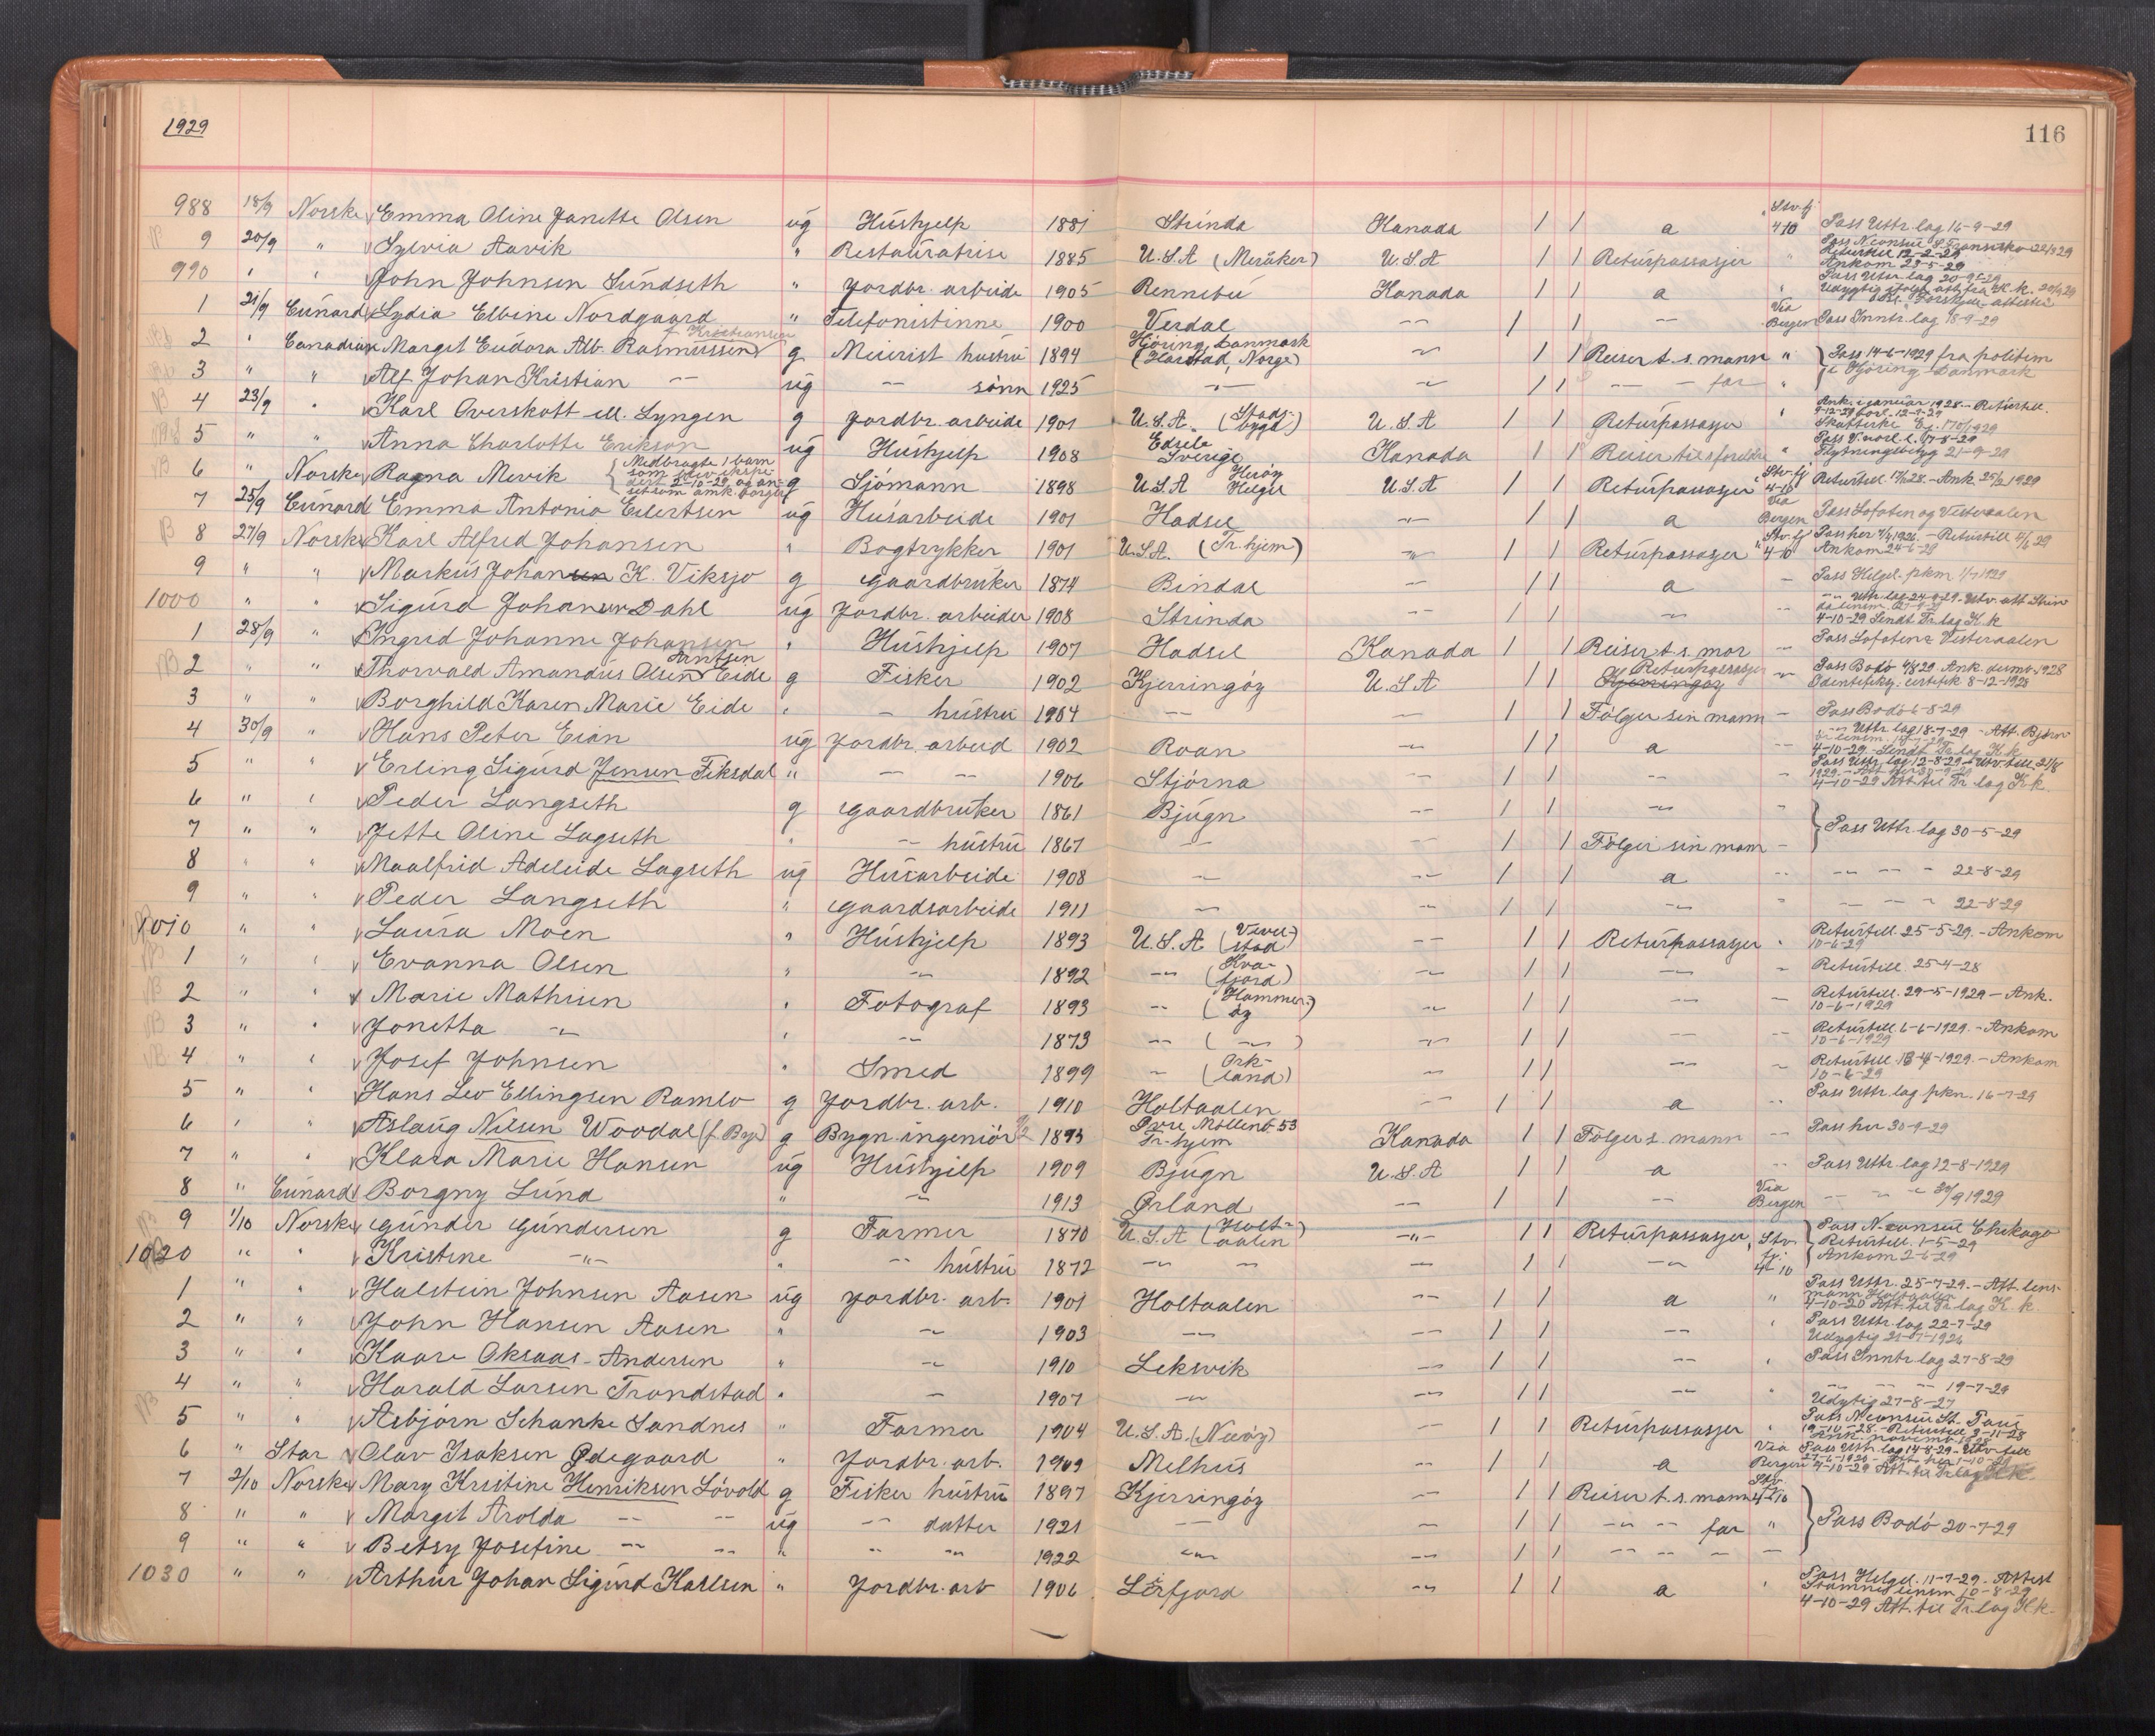 1929
116
988 18/9 Norske Emma Oline Janette Olsen ug Hushjelp 1881 Strinda Kanada 1 1 a Stv.fj 4/10 Pass Uttr.lag 16-9-29
9 20/9 " Sylvia Aavik " Restauratrise 1885 U.S.A (Meråker) U.S.A 1 1 Returpassasjer " Returbill 12-2-29 Ankom 23-5-29
990 " " John Johnsen Sundseth " Jordbr. arbeide 1905 Rennebu Kanada 1 1 a " Pass Uttr lag 20-9-29
1 21/9 Cunard Lydia Elbine Nordgaard " Telefonistinne 1900 Verdal -"- 1 1 -"- Via Bergen Pass Inntr.lag 18-9-29
2 " Canadian Margit Eudora Alb. Rasmussen f. Kristiansen g Meierist hustru 1894 Hjöring, Danmark (Harstad, Norge) -"- 1 1 Reiser t. s. mann " Pass 14-6-1929 fra politim i Hjöring Danmark
3 " " Alf Johan Kristian -"- ug -"- sönn 1925 -"- -"- 1 1 -"- - far "
4 23/9 " Karl Overskott ell. Lyngen g Jordbr. arbeide 1901 U.S.A. (Stads-bygd) U.S.A 1 1 Returpassasjer " Ank. januar 1928 - Returbill.
5 " " Anna Charlotte Erikson ug Hushjelp 1908 Edsele Sverige Kanada 1 1 Reiser til s foreldre " Flytningsbetyg 21-9-29
6 " Norske Ragna Mevik {Medbragte 1 barn g Sjömann 1898 U.S.A Heröy Helgel U.S.A 1 1 Returpassasjer Stv.fj 4-10 Returbill. 17/1 28. - Ank. 25/2 1929
7 25/9 Cunard Emma Antonie Eilertsen ug Husarbeide 1901 Hadsel -"- 1 1 a Via Bergen Pass Lofoten og Vesteraalen
8 27/9 Norske Karl Alfred Johansen " Bogtrykker 1901 U.S.A. (Tr.hjem) -"- 1 1 Returpassasjer Stv.fj 4-10 Ankom 24-6-29
9 " " Markus Johansen K. Viksjo g Gaardbruker 1874 Bindal -"- 1 1 a - Pass Helgel. pkm 1/7 1929
1000 " " Sigurd Johansen Dahl ug Jordbr. arbeider 1908 Strinda -"- 1 1 -"- -"- 4-10-29 Sendt Tr.lag K.k
1 28/9 " Ingrid Johanne Johansen " Hushjelp 1907 Hadsel Kanada 1 1 Reiser t. s. mor - Pass Lofoten & Vesteraalen
2 " " Thorvald Amandus Olsen Arntsen Eide g Fisker 1902 Kjerringöy U.S.A 1 1 Kjerringöy Returpassasjer -"- Pass Bodö 4/8 29 Ank. desmb. 1928 Identifiksj. certifik 8-12-1928
3 " " Borghild Karen Marie Eide " - hustru 1904 -"- -"- 1 1 Fölger sin mann - Pass Bodö 6-8-29
4 30/9 " Hans Peter Eian ug Jordbr. arbeid 1902 Roan -"- 1 1 a -"- Uttr lag 18-7-29 - Att. Björnör lensm. 4-10-29 - Sendt Tr.lag K.k
5 " " Erling Sigurd Jensen Fiksdal " -"- -"- 1906 Stjörna -"- 1 1 -"- - Pass Uttr. lag 12-8-29 4-10-29 Att til Tr lag K k.
6 " " Peder Langseth g Gaardbruker 1861 Bjugn -"- 1 1 -"- -
7 " " Jette Oline Lagseth " -"- hustru 1867 -"- - 1 1 Fölger sin mann - Pass Uttr lag 30-5-29
8 " " Maalfrid Adeleide Lagseth ug Husarbeide 1908 -"- -"- 1 1 a -"- -"- -"- - 22-8-29
9 " " Peder Langseth " Gaardsarbeide 1911 -"- -"- 1 1 -"- " -"- -"- - 22-8-29
1010 " " Laura Moen " Hushjelp 1893 U.S.A (Vevel-stad) -"- 1 1 Returpassasjer " Returbill. 25-5-29. - Ankom 10-6-29
1 " " Evanna Olsen " -"- 1892 -"- (Kva-fjord) -"- 1 1 -"- - Returbill. 25-4-28
2 " " Marie Mathisen " Fotograf 1893 -"- (Hammer-öy) -"- 1 1 -"- - Returbill. 29-5-1929 - Ank. 10-6-1929
3 " " Jonetta -"- " -"- 1873 -"- (-"-) -"- 1 1 -"- - Returbill. 6-6-1929. - Ankom 10-6-1929
4 " " Josef Johnsen " Smed 1899 -"- (Ork-land) -"- 1 1 -"- - Returbill. 18-4-1929. - Ankom 10-6-29
5 " " Hans Leo Ellingsen Ramlo g Jordbr. arb. 1910 Holtaalen -"- 1 1 a -"- Pass Uttr. lag pkm. 16-7-29
6 " " Aslaug Nilsen Woodal (f. Bye) g Bygn. ingeniör 1893 Övre Möllenb. 53 Tr-hjem Kanada 1 1 Fölger s. mann - Pass her 30-9-29
7 " " Klara Marie Hansen ug Hushjelp 1909 Bjugn U.S.A 1 1 a -"- Pass Uttr. lag 12-8-1929
8 " Cunard Borgny Lund " -"- 1913 Ørland -"- 1 1 -"- Via Bergen -"- -"- 30/9 1929
9 1/10 Norske Gunder Gundersen g Farmer 1870 U.S.A (Holt-aalen) -"- 1 1 Returpassasjer Stv. fj. 4-10 Pass N. consul Chikago Returbill. 1-5-29 Ankom 2-6-29
1020 " " Kristine -"- " -"- hustru 1872 -"- -"- -"- 1 1 -"-
1 " " Halstein Johnsen Aasen ug Jordbr. arb. 1901 Holtaalen -"- 1 1 a " Pass Uttr. 25-7-29. - Att. lensmann Holtaalen 4-10-20 Att. til Tr.lag K.k
2 " " John Hansen Aasen " -"- 1903 -"- -"- 1 1 -"- " Pass Uttr. lag 22-7-29
3 " " Kaare Oksaas-Andersen " -"- 1910 Leksvik -"- 1 1 -"- " Pass Inntr lag 27-8-29
4 " " Harald Larsen Trondstad " - 1907 -"- -"- 1 1 -"- " -"- -"- 19-7-29 Udygtig 27-8-27
5 " " Asbjörn Schanke Sandnes " Farmer 1904 U.S.A. (Neröy) -"- 1 1 Returpassasjer " Pass N consul St. Paul
6 " Star Olav Isaksen Ødegaard " Jordbr. arb. 1909 Melhus -"- 1 1 a Via Bergen Pass Uttr. lag 14-8-29 4-10-29 Att. til Tr lag K.k.
7 2/10 Norske Mary Kristine Henriksen Lövold g Fisker hustru 1897 Kjerringöy -"- 1 1 Reiser t. s. mann Stv. 4-10
8 " " Margit Arolda -"- -"- ug -"- datter 1921 -"- -"- 1 1 -"- -"- far " Pass Bodö 20-7-29
9 " " Betsy Josefine -"- -"- " -"- -"- 1922 -"- -"- 1 1 -"- -"- - -
1030 " " Arthur Johan Sigurd Karlsen " Jordbr. arb 1906 Leirfjord -"- 1 1 a " Pass Helgel. 11-7-29. Attest lensm 10-8-29 4-10-29 Att. til Tr.lag K.k.